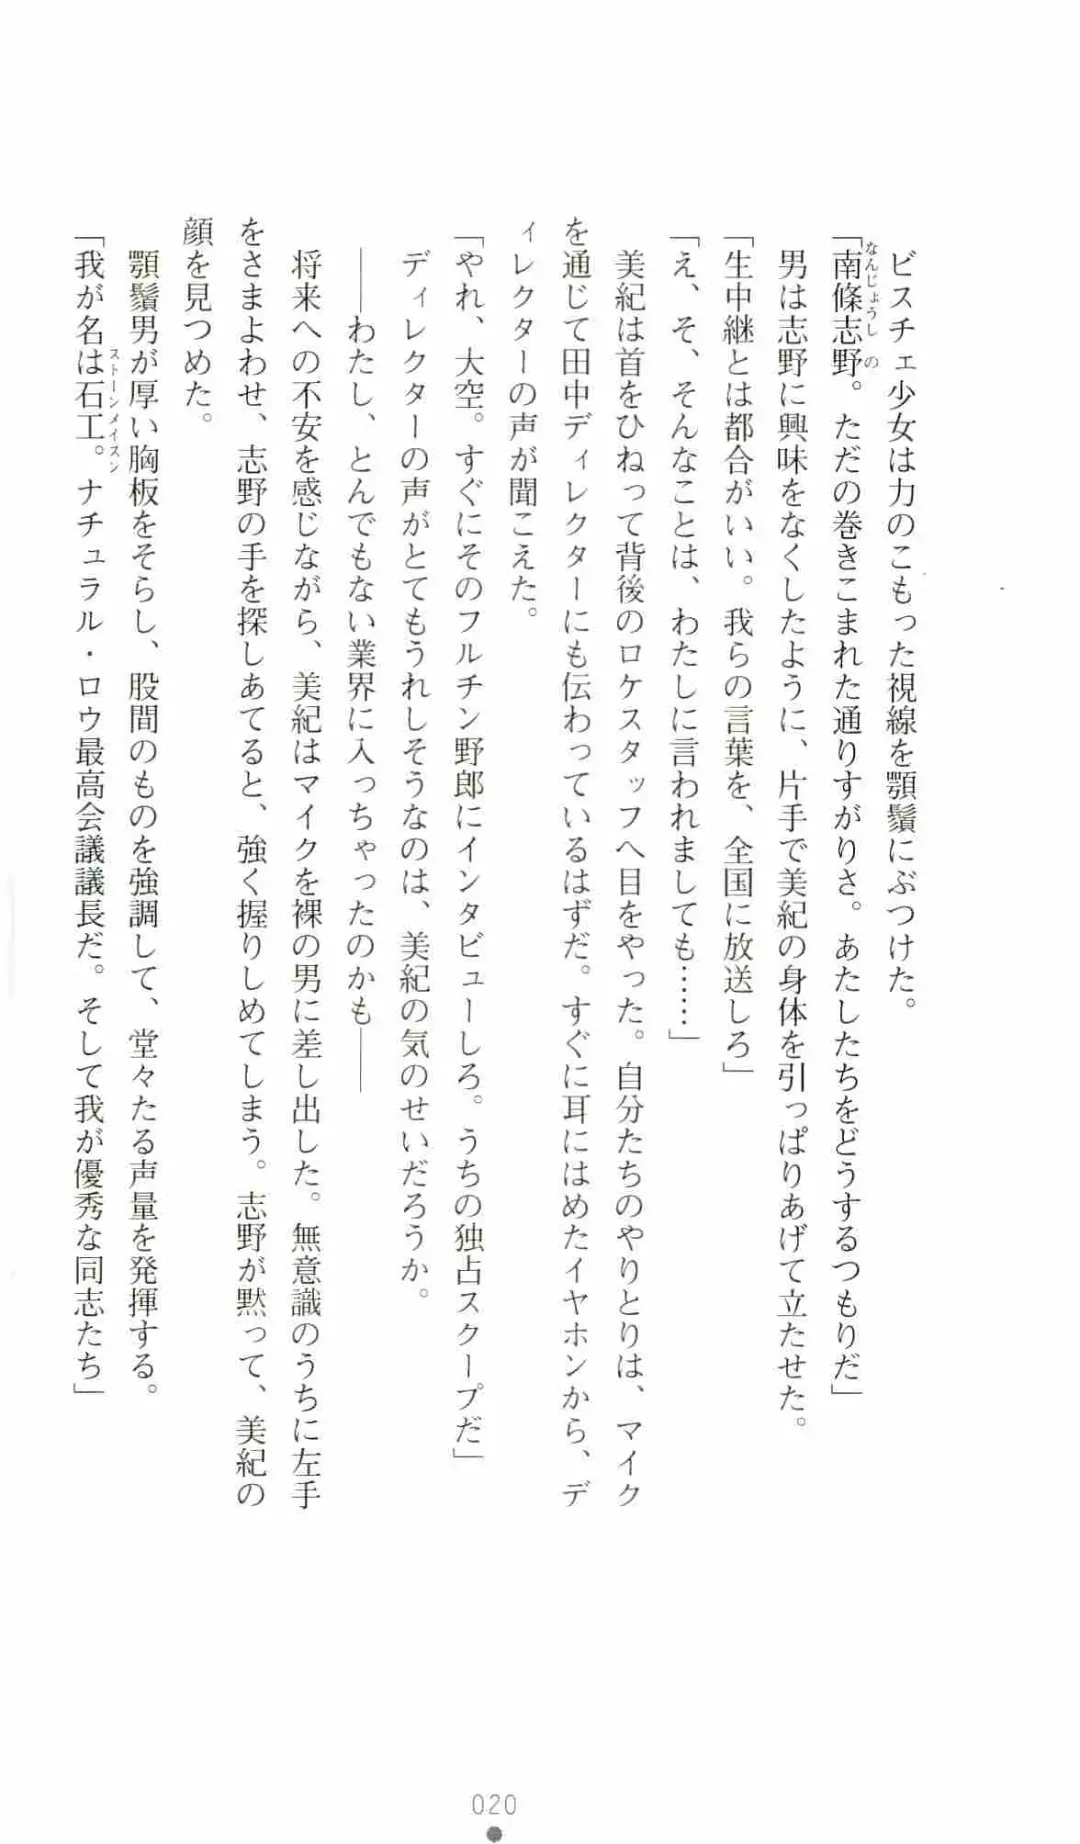 ビスチェ少女は力のこもった視線を顎鬚にぶつけた。
「南條志野。ただの巻きこまれた通りすがりさ。あたしたちをどうするつもりだ」
なんじょうしの
男は志野に興味をなくしたように、片手で美紀の身体を引っぱりあげて立たせた。
「生中継とは都合がいい。我らの言葉を、全国に放送しろ」
「え、そ、そんなことは、わたしに言われましても……」
美紀は首をひねって背後のロケスタッフへ目をやった。自分たちのやりとりは、マイク
を通じて田中ディレクターにも伝わっているはずだ。すぐに耳にはめたイヤホンから、デ
ィレクターの声が聞こえた。
「やれ、大空。すぐにそのフルチン野郎にインタビューしろ。うちの独占スクープだ」
ディレクターの声がとてもうれしそうなのは、美紀の気のせいだろうか。
――わたし、とんでもない業界に入っちゃったのかも――
将来への不安を感じながら、美紀はマイクを裸の男に差し出した。無意識のうちに左手
をさまよわせ、志野の手を探しあてると、強く握りしめてしまう。志野が黙って、美紀の
顔を見つめた。
顎鬚男が厚い胸板をそらし、股間のものを強調して、堂々たる声量を発揮する。
「我が名は石工。ナチュラル・ロウ最高会議議長だ。そして我が優秀な同志たち」
ストーンメイスン
020